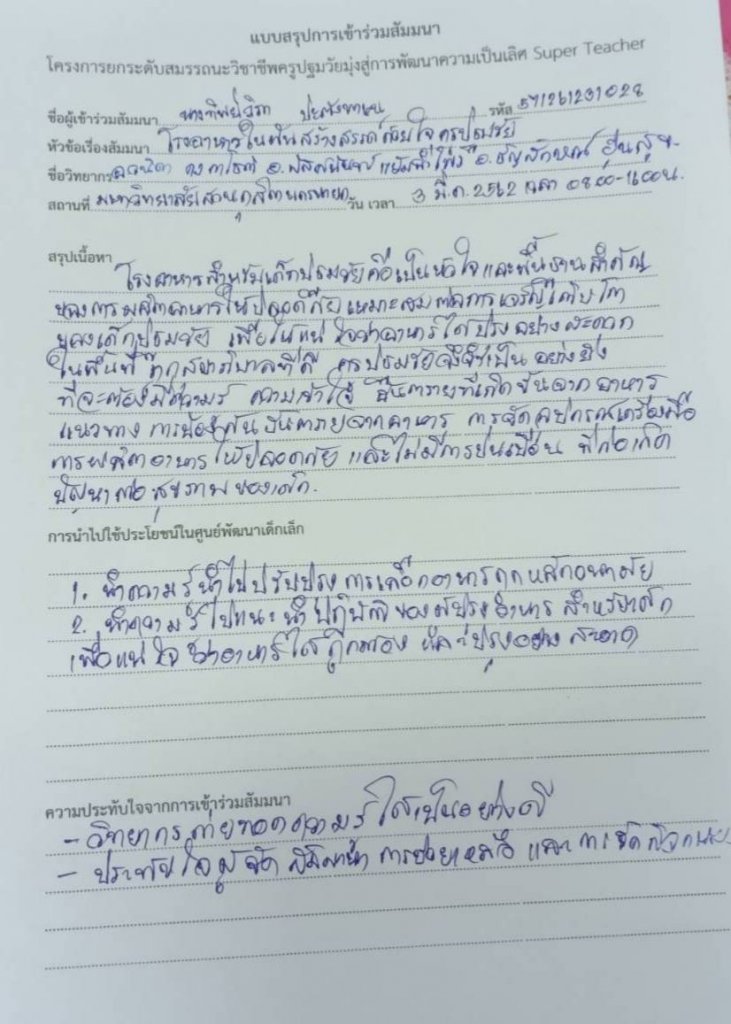 แบบสรุปการเข้าร่วมสัมมนา
โครงการยกระดับสมรรถนะวิชาชีพครูปฐมวัยมุ่งสู่การพัฒนาความเป็นเลิศ Super Teacher
ชื่อผู้เข้าร่วมสัมมนา รหัส
หัวข้อเรื่องสัมมนา โรงอาหารในฝันสร้างสรรค์ด้วยใจครูปฐมวัย
ชื่อวิทยากร
สถานที่ มหาวิทยาลัยสวนดุสิตนครนายก วัน เวลา 3 มี.ค. 2562 เวลา 08.00-16.00น.
สรุปเนื้อหา
โรงอาหารสำหรับเด็กปฐมวัยคือเป็นหัวใจและพื้นฐานสำคัญ
ของการผลิตอาหารให้ปลอดภัย เหมาะสมต่อการเจริญเติบโต
ของเด็กปฐมวัย เพื่อให้แน่ใจว่าอาหารได้ปรุงอย่างสะอาด
ในพื้นที่ ถูกสุขาภิบาลที่ดี ครูปฐมวัยจึงจำเป็นอย่างยิ่ง
ที่จะต้องมีความรู้ ความเข้าใจ อันตรายที่เกิดขึ้นจากอาหาร
แนวทางการป้องกันอันตรายจากอาหาร การจัดอุปกรณ์เครื่องมือ
การผลิตอาหารให้ปลอดภัย และไม่มีการปนเปื้อน ที่ก่อเกิด
ปัญหาต่อสุขภาพของเด็ก.
การนำไปใช้ประโยชน์ในศูนย์พัฒนาเด็กเล็ก
1. นำความรู้นี้ไปปรับปรุงการเลือกอาหารถูกหลักอนามัย
2. นำความรู้ไปแนะนำปฏิบัติของผู้ปรุงอาหารสำหรับเด็ก
เพื่อแน่ใจว่าอาหารได้ถูกต้อง ปรุงอย่างสะอาด
ความประทับใจจากการเข้าร่วมสัมมนา
- วิทยากรถ่ายทอดความรู้ได้เป็นอย่างดี
- ประทับใจผู้จัดสัมมนา การช่วยเหลือ และการจัดกิจกรรม